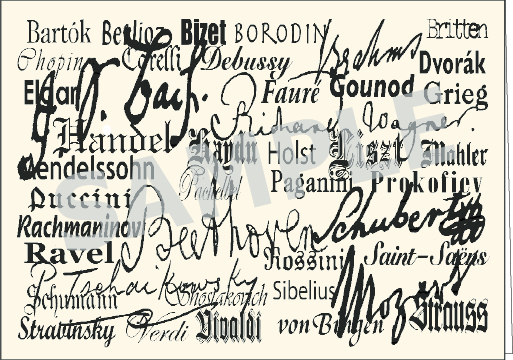 Bartók Berlioz Bizet BORODIN Brahms Britten
Chopin Corelli Debussy Dvorák
Elgar J. S. Bach. Fauré Gounod Grieg
Handel Richard Wagner.
Haydn Holst Liszt Mahler
Mendelssohn Pachelbel Paganini Prokofiev
Puccini
Rachmaninov Beethoven Schubert
Ravel Rossini Saint-Saëns
P. Tschaikowsky Mozart
Schumann Shostakovich Sibelius
Stravinsky Verdi Vivaldi von Bingen Strauss
SAMPLE